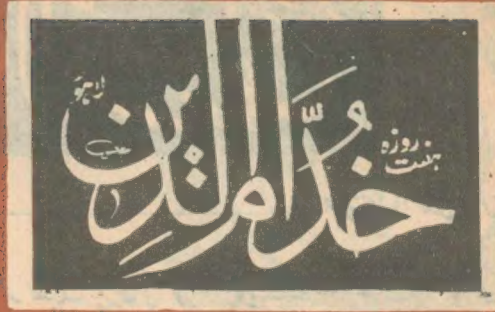 ہفت روزہ
خدّام الدّین
لاہور